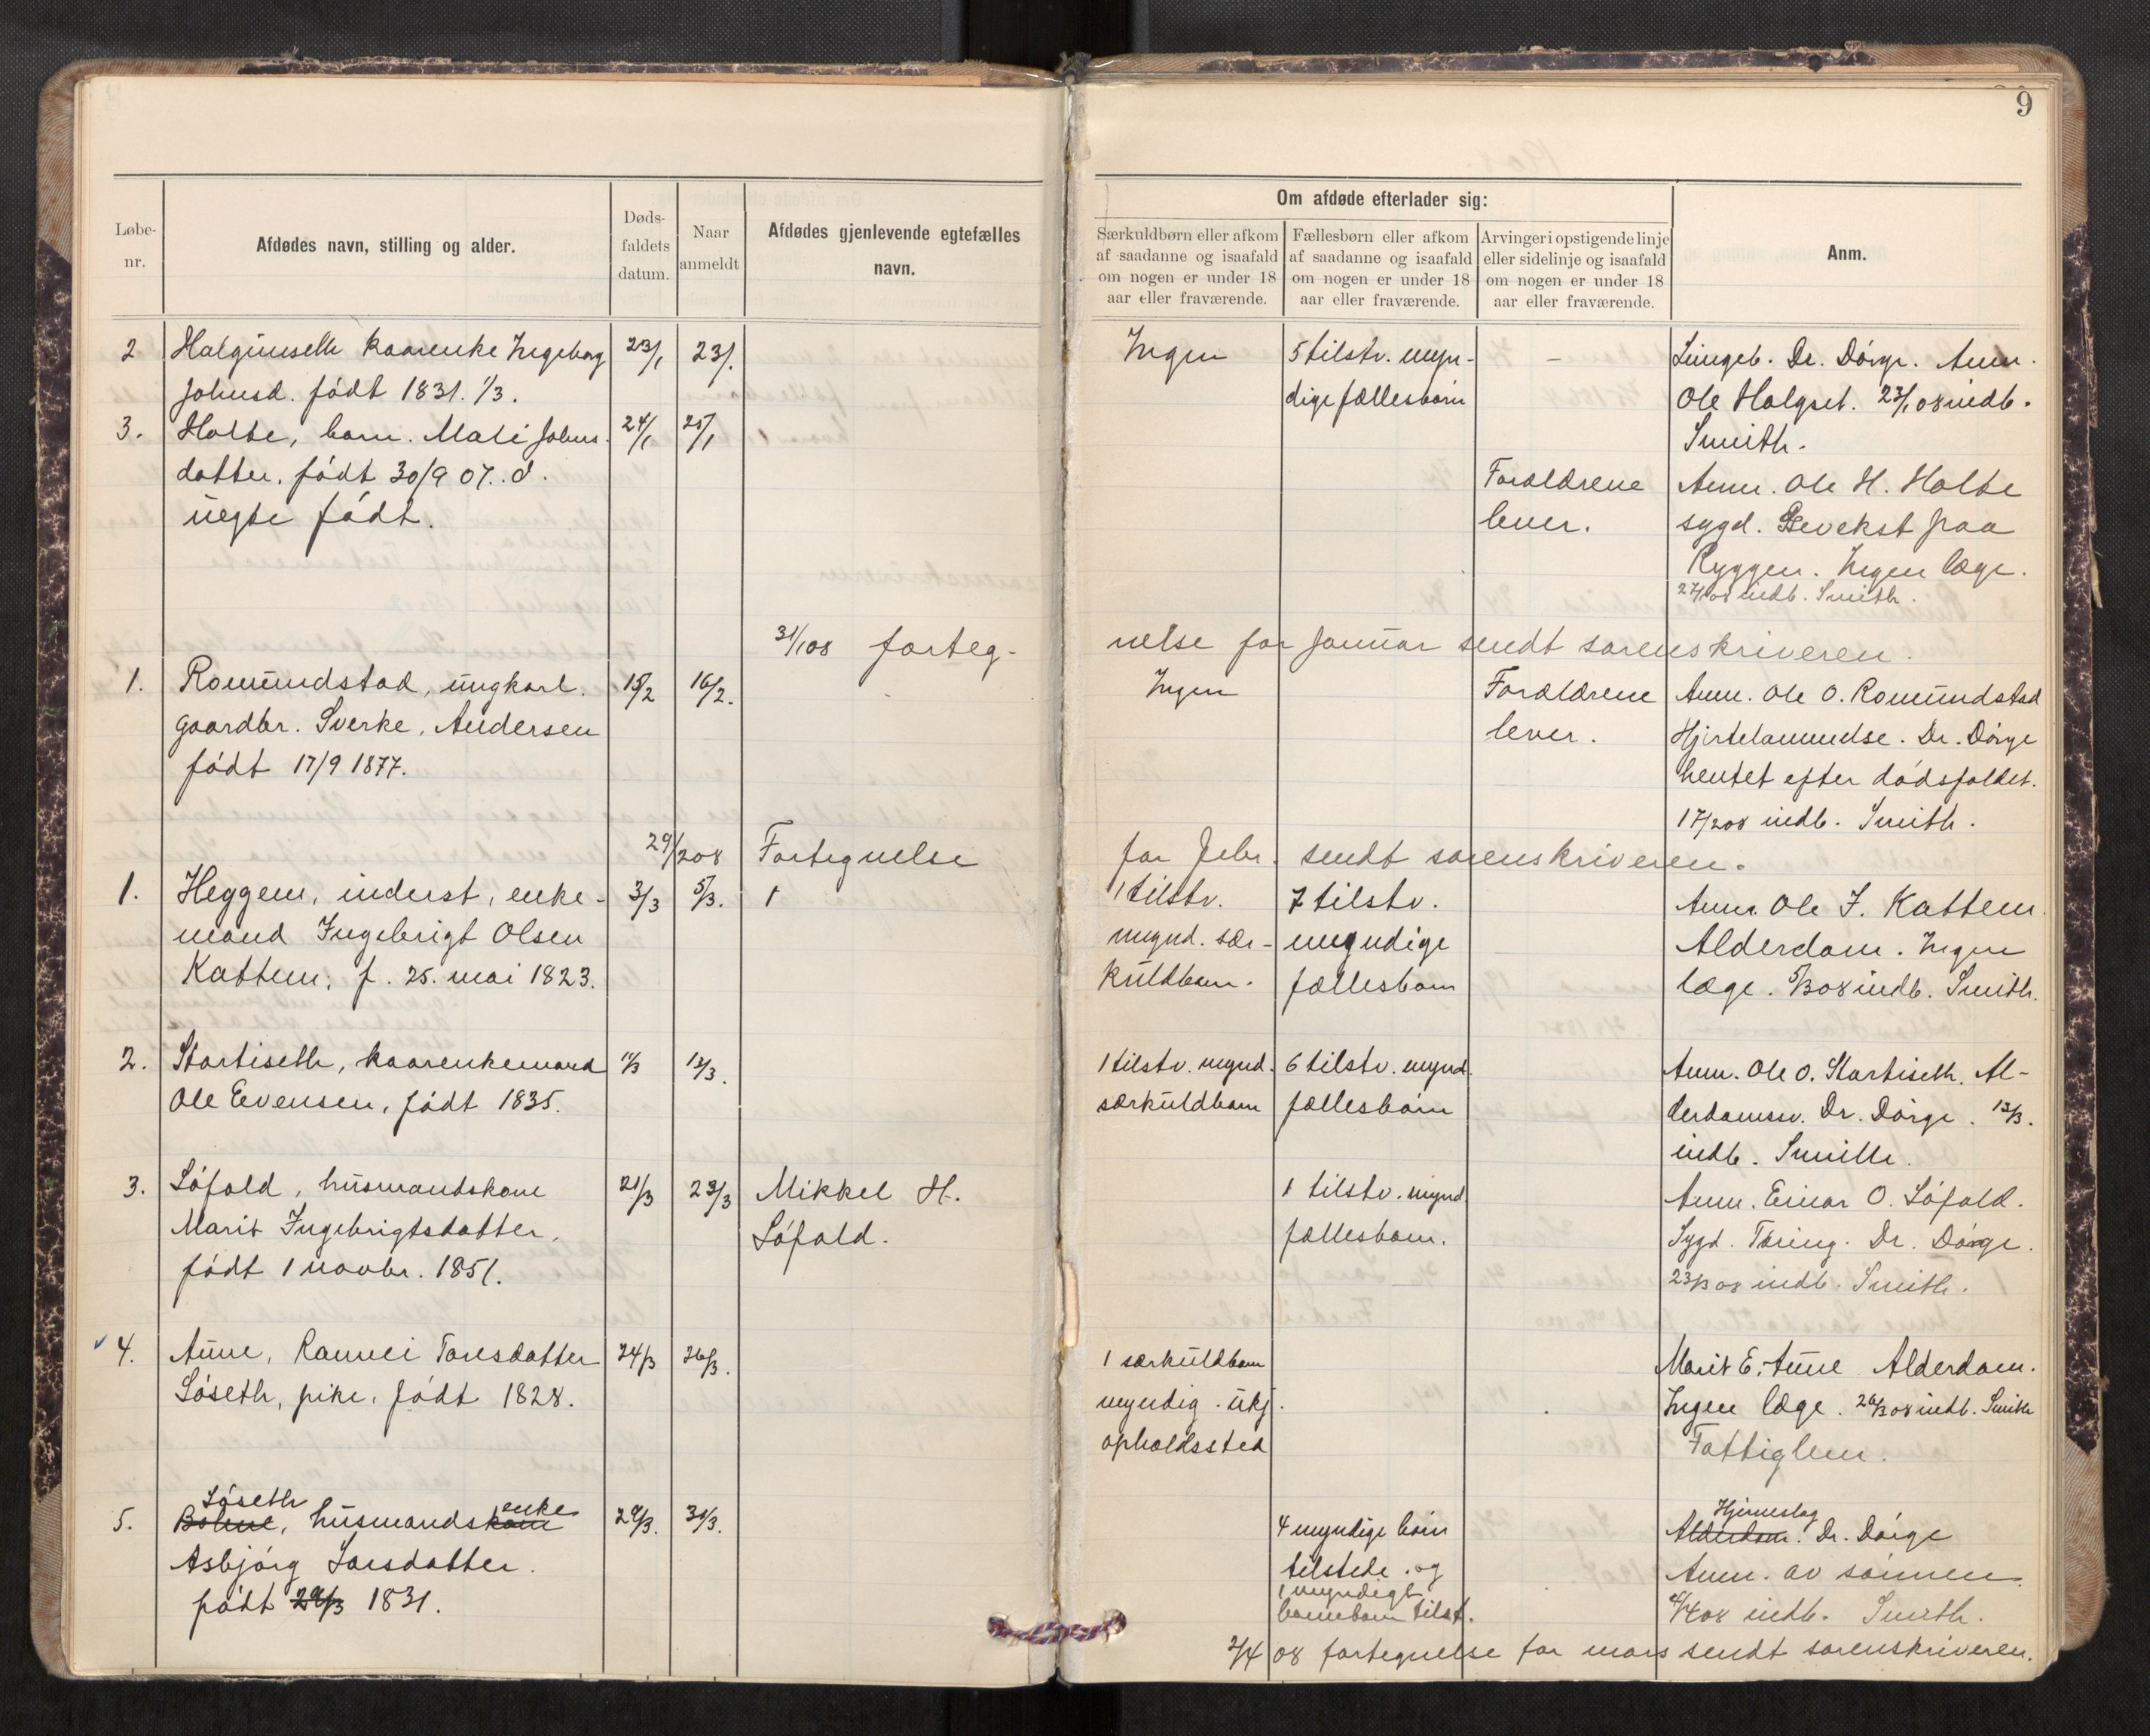 9
Løbe-
nr.
Afdødes navn, stilling og alder.
Døds-
faldets
datum.
Naar
anmeldt
Afdødes gjenlevende egtefælles
navn.
Om afdøde efterlader sig:
Særkuldbørn eller afkom
af saadanne og isaafald
om nogen er under 18
aar eller fraværende.
Fællesbørn eller afkom
af saadanne og isaafald
om nogen er under 18
aar eller fraværende.
Arvinger i opstigende linje
eller sidelinje og isaafald
om nogen er under 18
aar eller fraværende.
Anm.
2 Halgunseth kaarenke Ingeborg 23/1 23/1
Johnsd. født 1831. 1/3.
Ingen
5 tilstv. myn-
dige fællesbørn
–
Lungeb. Dr. Dörge. Anm.
Ole Halgset. 23/1 08 indb.
Smith.
3. Holte, barn. Mali Johns- 24/1 25/1
datter, født 30/9 07. d.
uegte født.
Forældrene
lever.
Anm. Ole H. Holte
sygd. Bevekst paa
Ryggen. Ingen læge.
27/1 08 indb. Smith.
31/1 08 forteg-
nelse for Januar sendt sorenskriveren.
1. Romundstad, ungkarl. 15/2 16/2.
gaardbr. Sverke, Andersen
født 17/9 1877.
Ingen
Forældrene
lever.
Anm. Ole O. Romundstad
Hjertelammelse. Dr. Dörge
hentet efter dødsfaldet.
17/2 08 indb. Smith.
29/2 08 Fortegnelse
for Febr. sendt sorenskriveren.
1. Heggem, inderst, enke- 3/3 5/3. 1
mand Ingebrigt Olsen
Kattem, f. 25. mai 1823.
1 tilstv.
mynd. sær-
kuldbarn.
7 tilstv.
myndige
fællesbarn
Anm. Ole J. Kattem.
Alderdom. Ingen
læge. 5/3 08 indb. Smith.
2. Stortiseth, kaarenkemand 11/3 12/3.
Ole Evensen, født 1835.
1 tilstv. mynd.
særkuldbarn
6 tilstv. mynd.
fællesbörn
Anm. Ole O. Stortiseth. Al-
derdomssv. Dr. Dörge. 12/3.
indb. Smith.
3. Löfald, husmandskone 21/3 23/3 Mikkel H.
Marit Ingebrigtsdatter, Löfald.
født 1 novbr. 1851.
1 tilstv. mynd
fællesbarn.
Anm. Einar O. Löfald.
Sygd. Tæring. Dr. Dörge.
23/3 08 indb. Smith.
4. Aune, Rannei Toresdatter 24/3 26/3.
Löseth, pike, født 1828.
1 særkuldbarn
myndig. ukj.
opholdssted
Marit E. Aune Alderdom.
Ingen læge. 26/3 08 indb. Smith
Fattiglem.
Löseth enke
5. Bolme, husmandskone 29/3. 30/3.
Asbjörg Larsdatter.
født 29/3 1831.
4 myndige börn
tilstede. og
1 myndigt
barnebarn tilst.
Hjerneslag
Alderdom. Dr. Dörge
Anm. av sönnen.
2/4 08 indb. Smith.
2/4 08 fortegnelse for mars sendt sorenskriveren.